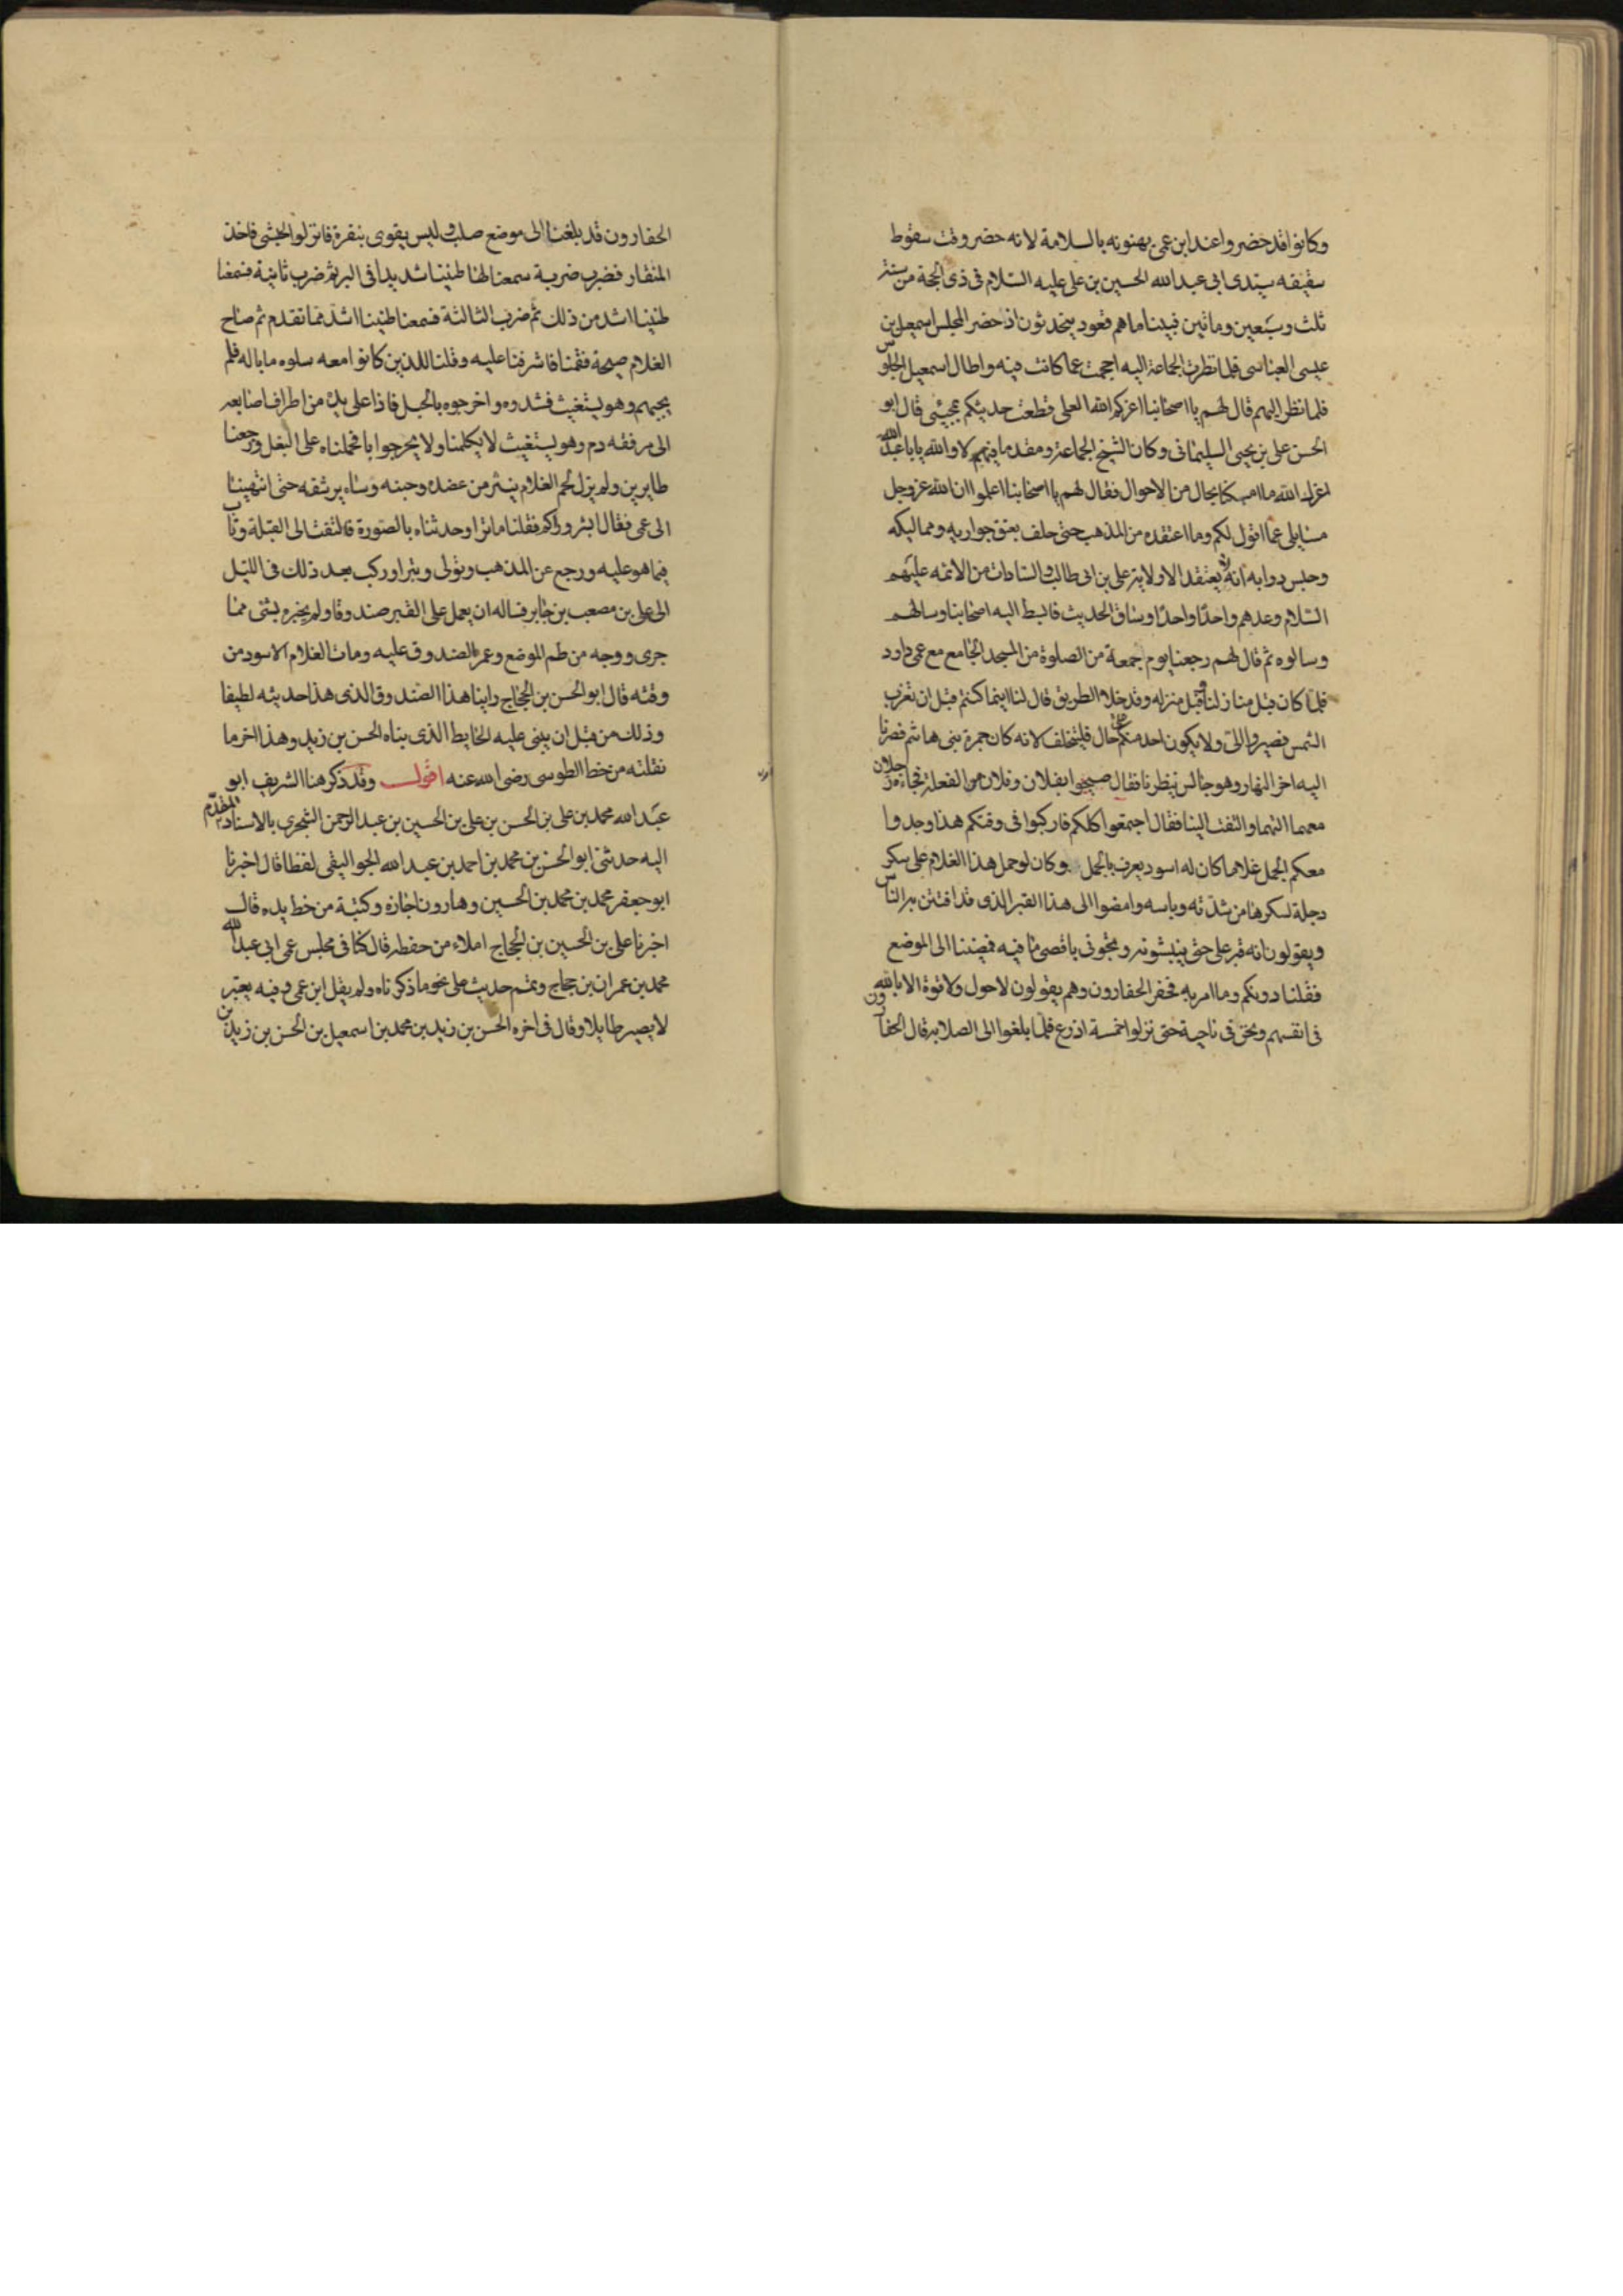 وكانوا قد حضروا عند ابن عمى يهنونه بالسلامة لانه حضر وقت سقوط
سقيفة سيدى ابى عبد الله الحسين بن على عليه السلام فى ذى الحجة من سنة
ثلث وسبعين ومائتين فبينا ما هم قعود يتحدثون اذ حضر المجلس اسمعيل بن
عيسى العباسى فلما نظرت الجماعة اليه احجمت عما كانت فيه واطال اسمعيل الجلوس
فلما نظر اليهم قال لهم يا اصحابنا اعزكم الله لعلى قطعت حديثكم بمجيئى قال ابو
الحسن على بن يحيى السليمانى وكان شيخ الجماعة ومقدما فيهم لا والله يابا عبد الله
اعزك الله ما امسكنا بحال من الاحوال فقال لهم يا اصحابنا اعلموا ان الله عز وجل
مسايلى عما اقول لكم وما اعتقده من المذهب حتى حلف بعتق جواريه ومماليكه
وحبس دوابه انه لا يعتقد الا ولاية على بن ابى طالب والسادات من الائمه عليهم
السلام وعدهم واحدا واحدا وساق الحديث فابسط اليه اصحابنا وسالهم
وسالوه ثم قال لهم رجعنا يوم جمعة من الصلوة من المسجد الجامع مع عمى داود
فلما كان قبل منازلنا وقبل منزله وقد خلا الطريق قال لنا اينما كنتم قبل ان تغرب
الشمس فصيروا الى ولا يكون احد منكم على حال فليتخلف لانه كان جمرة بنى هاشم فصرنا
اليه اخر النهار وهو جالس ينتظرنا فقال صيحوا بفلان وفلان من الفعلة فجاءه رجلان
معهما التهما والتفت الينا فقال اجتمعوا كلكم فاركبوا فى وقتكم هذا وخذوا
معكم الجمل غلاما كان له اسود يعرف بالجمل وكان لو حمل هذا الغلام على سكر
دجلة لسكرها من شدته وباسه وامضوا الى هذا القبر الذى قد افتتن به الناس
ويقولون انه قبر على حتى ينبشونه وتجونى باقصى ما فيه فمضينا الى الموضع
فقلنا دونكم وما امر به فحفر الحفارون وهم يقولون لا حول ولا قوة الا بالله
فى انفسهم ونحن فى ناحية حتى نزلوا خمسة اذرع فلما بلغوا الى الصلابة قال الحفارون
الحفارون قد بلغنا الى موضع صلب وليس يقوى بنقرة فانزلوا الحبشى فاخذ
المنقار فضرب ضربة سمعنا لها طنينا شديدا فى البر ثم ضرب ثانية فسمعنا
طنينا اشد من ذلك ثم ضرب الثالثة فسمعنا طنينا اشد مما تقدم ثم صاح
الغلام صيحة فقمنا فاشرفنا عليه وقلنا للذين كانوا معه سلوه ما باله فلم
يجبهم وهو يستغيث فشدوه واخرجوه بالحبل فاذا على يده من اطراف اصابعه
الى مرفقه دم وهو يستغيث لا يكلمنا ولا يحير جوابا فحملناه على البغل ورجعنا
طايرين ولم يزل لحم الغلام ينتثر من عضده وجنبه وساير شقه حتى انتهينا
الى عمى فقال ايش وراكم فقلنا ما ترا وحدثناه بالصورة فالتفت الى القبلة وتاب
مما هو عليه ورجع عن المذهب وتولى وتبرا وركب بعد ذلك فى الليل
الى على بن مصعب بن جابر فساله ان يعمل على القبر صندوقا ولم يخبره بشى مما
جرى ووجه من طم الموضع وعمر الصندوق عليه ومات الغلام الاسود من
وقته قال ابو الحسن بن الحجاج راينا هذا الصندوق الذى هذا حديثه لطيفا
وذلك من قبل ان يبنى عليه الحايط الذى بناه الحسن بن زيد وهذا اخر ما
نقلته من خط الطوسى رضى الله عنه اقول وقد ذكر هنا الشريف ابو
عبد الله محمد بن على بن الحسن بن على بن الحسين بن عبد الرحمن الشجرى بالاسناد المقدم
اليه حدثنى ابو الحسن بن محمد بن احمد بن عبد الله الجواليقى لفظا قال اخبرنا
ابو جعفر محمد بن محمد بن الحسين وهارون اجازه وكتبة من خط يده قال
اخبرنا على بن الحسين بن الحجاج املاء من حفظه قال كنا فى مجلس عمى ابى عبد الله
محمد بن عمران بن حجاج وتمم حديث على نحو ما ذكرناه ولم يقل ابن عمى وفيه يعتبر
لا يصير طايلا وقال فى اخره الحسن بن زيد بن محمد بن اسمعيل بن الحسن بن زيد بن